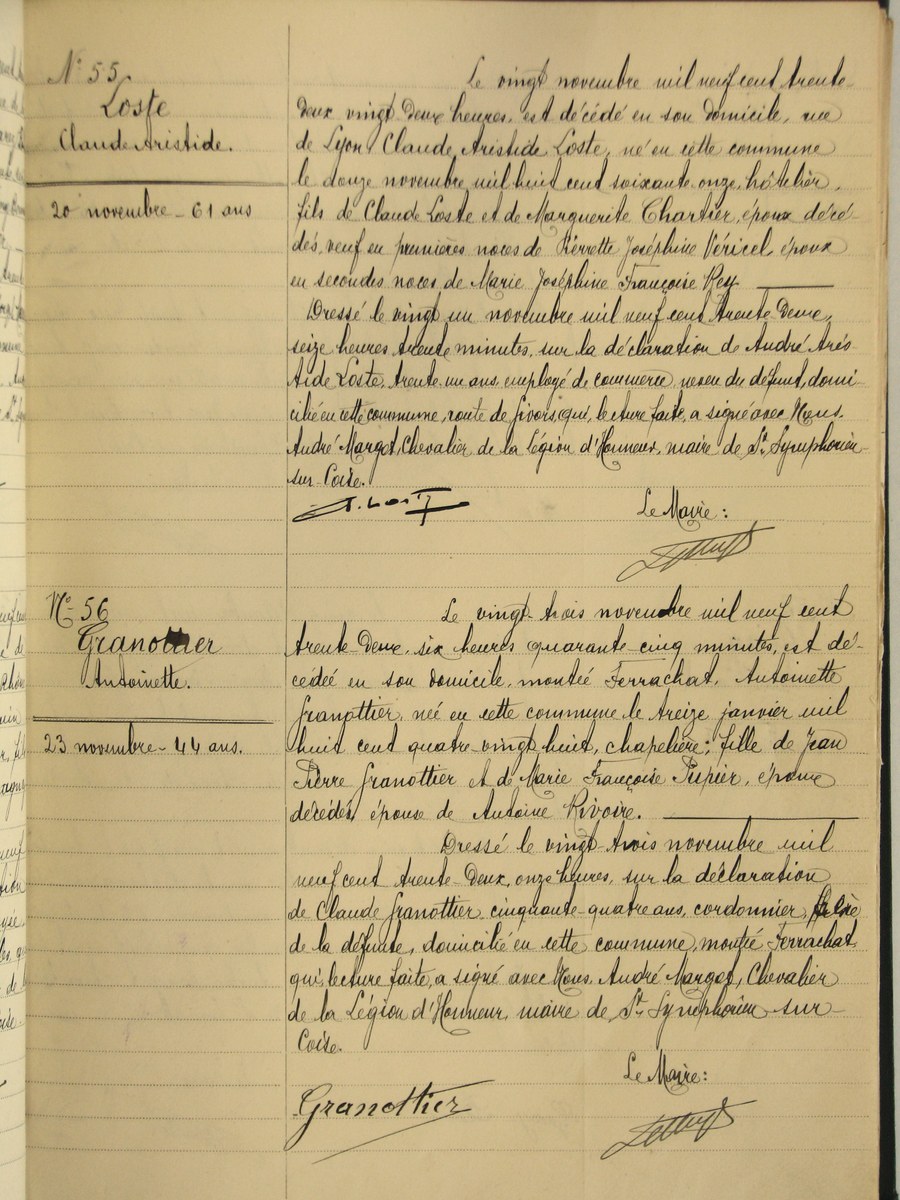 N° 55
Loste
Claude Aristide.
20 novembre - 61 ans
Le vingt novembre mil neuf cent trente-
deux vingt deux heures, est décédé en son domicile, rue
de Lyon, Claude Aristide Loste, né en cette commune
le douze novembre mil huit cent soixante onze, hôtelier,
fils de Claude Loste et de Marguerite Chartier, époux décé-
dés, veuf en premières noces de Pierrette Joséphine Véricel, époux
en secondes noces de Marie Joséphine Françoise Rey
Dressé le vingt un novembre mil neuf cent trente Deux,
seize heures trente minutes, sur la déclaration de André Aris-
tide Loste, trente un ans, employé de commerce, neveu du défunt, domi-
cilié en cette commune, route de Givors, qui, lecture faite, a signé avec Nous,
André Margot, Chevalier de la Légion d'Honneur, maire de St Symphorien-
sur-Coise.
A. Loste
Le Maire:
N° 56
Granottier
Antoinette.
23 novembre - 44 ans.
Le vingt-trois novembre mil neuf cent
trente-Deux, six heures quarante-cinq minutes, est dé-
cédée en son domicile, montée Ferrachat, Antoinette
Granottier, née en cette commune le treize janvier mil
huit cent quatre-vingt huit, chapelière; fille de Jean
Pierre Granottier et de Marie Françoise Pupier, époux
décédés, épouse de Antoine Rivoire.
Dressé le vingt-trois novembre mil
neuf cent trente-Deux, onze heures, sur la déclaration
de Claude Granottier, cinquante-quatre ans, cordonnier, frère
de la défunte, domicilié en cette commune, montée Ferrachat,
qui, lecture faite, a signé avec Nous, André Margot, Chevalier
de la Légion d'Honneur, maire de St Symphorien-sur-
Coise.
Le Maire:
Granottier